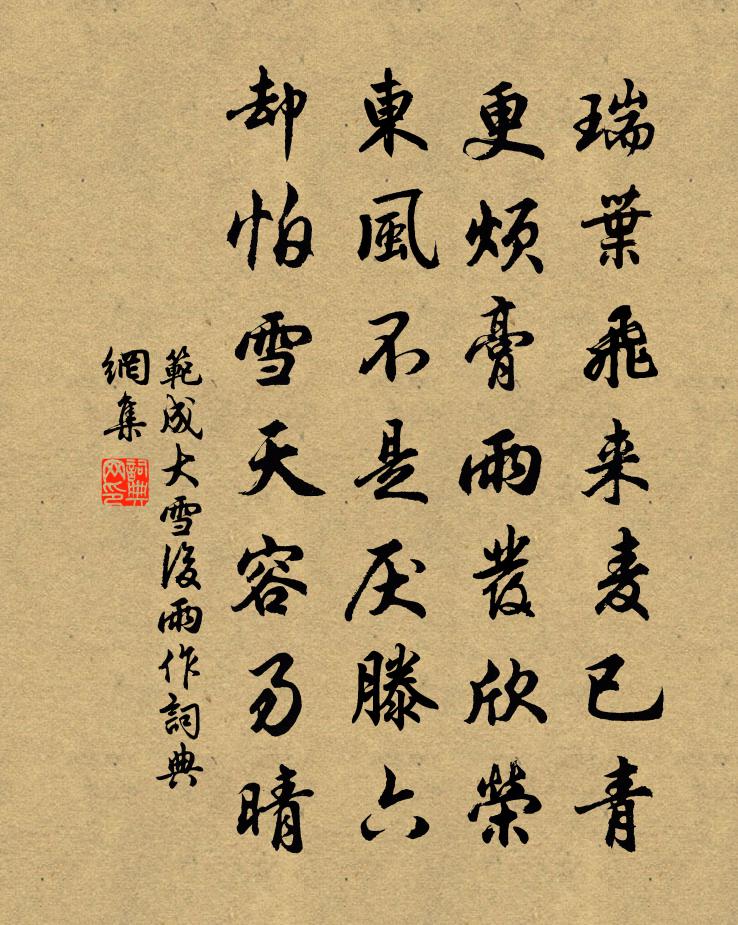 瑞葉飛来麦已青
更煩膏雨發欣榮
東風不是厌滕六
却怕雪天容易晴
範成大雪後雨作詞典
網集
詞典网印